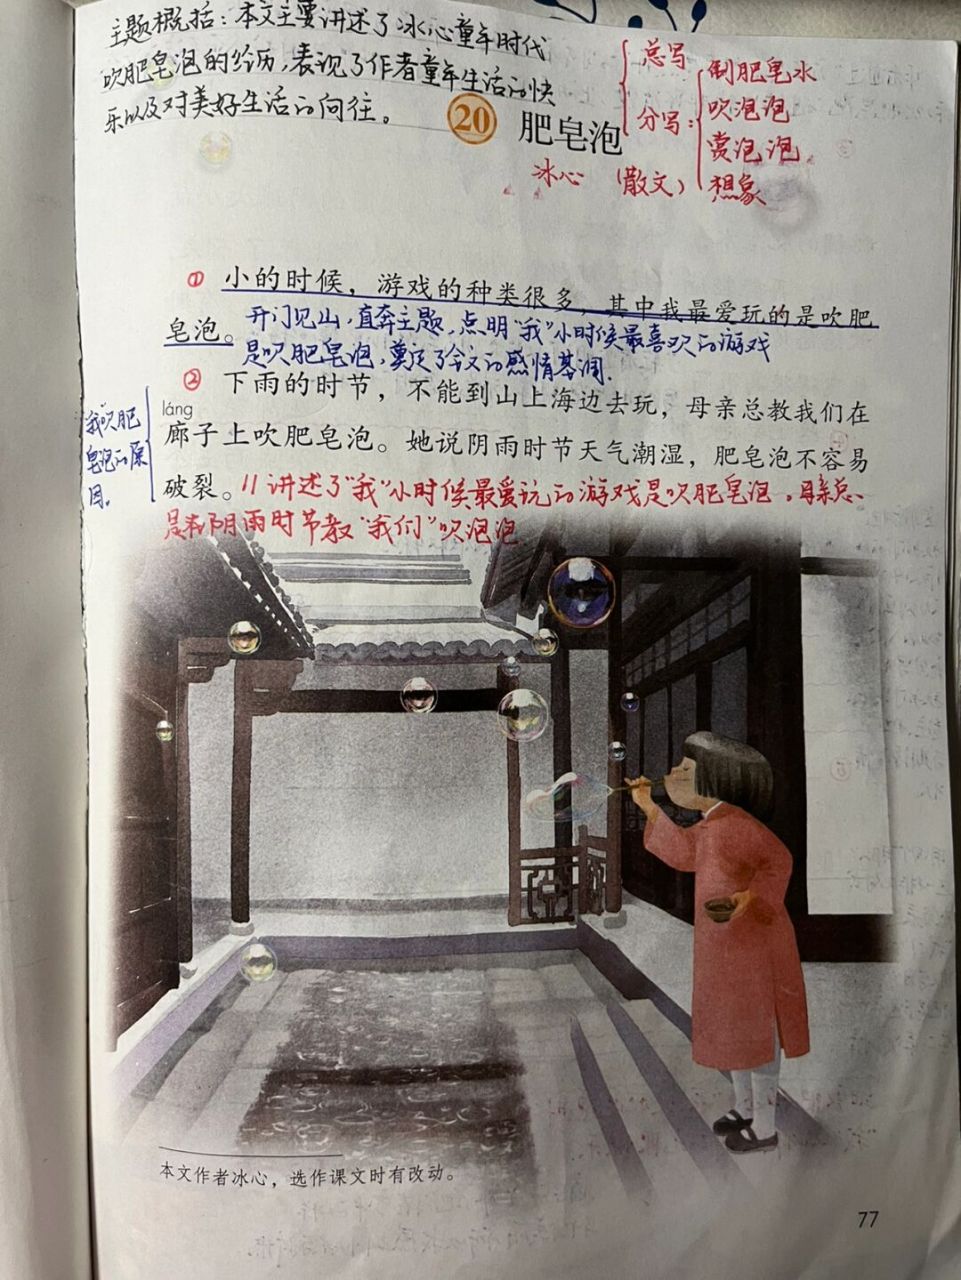 主题概括：本文主要讲述了冰心童年时代
吹肥皂泡的经历，表现了作者童年生活的快
乐以及对美好生活的向往。
20 肥皂泡
冰心 （散文）
总写
分写：
制肥皂水
吹泡泡
赏泡泡
想象
① 小的时候，游戏的种类很多，其中我最爱玩的是吹肥
皂泡。
开门见山，直奔主题，点明“我”小时候最喜欢的游戏
是吹肥皂泡，奠定了全文的感情基调.
② 下雨的时节，不能到山上海边去玩，母亲总教我们在
láng
廊子上吹肥皂泡。她说阴雨时节天气潮湿，肥皂泡不容易
破裂。
“我”吹肥
皂泡的原
因。
// 讲述了“我”小时候最爱玩的游戏是吹肥皂泡。母亲总
是在阴雨时节教“我们”吹泡泡
本文作者冰心，选作课文时有改动。
77